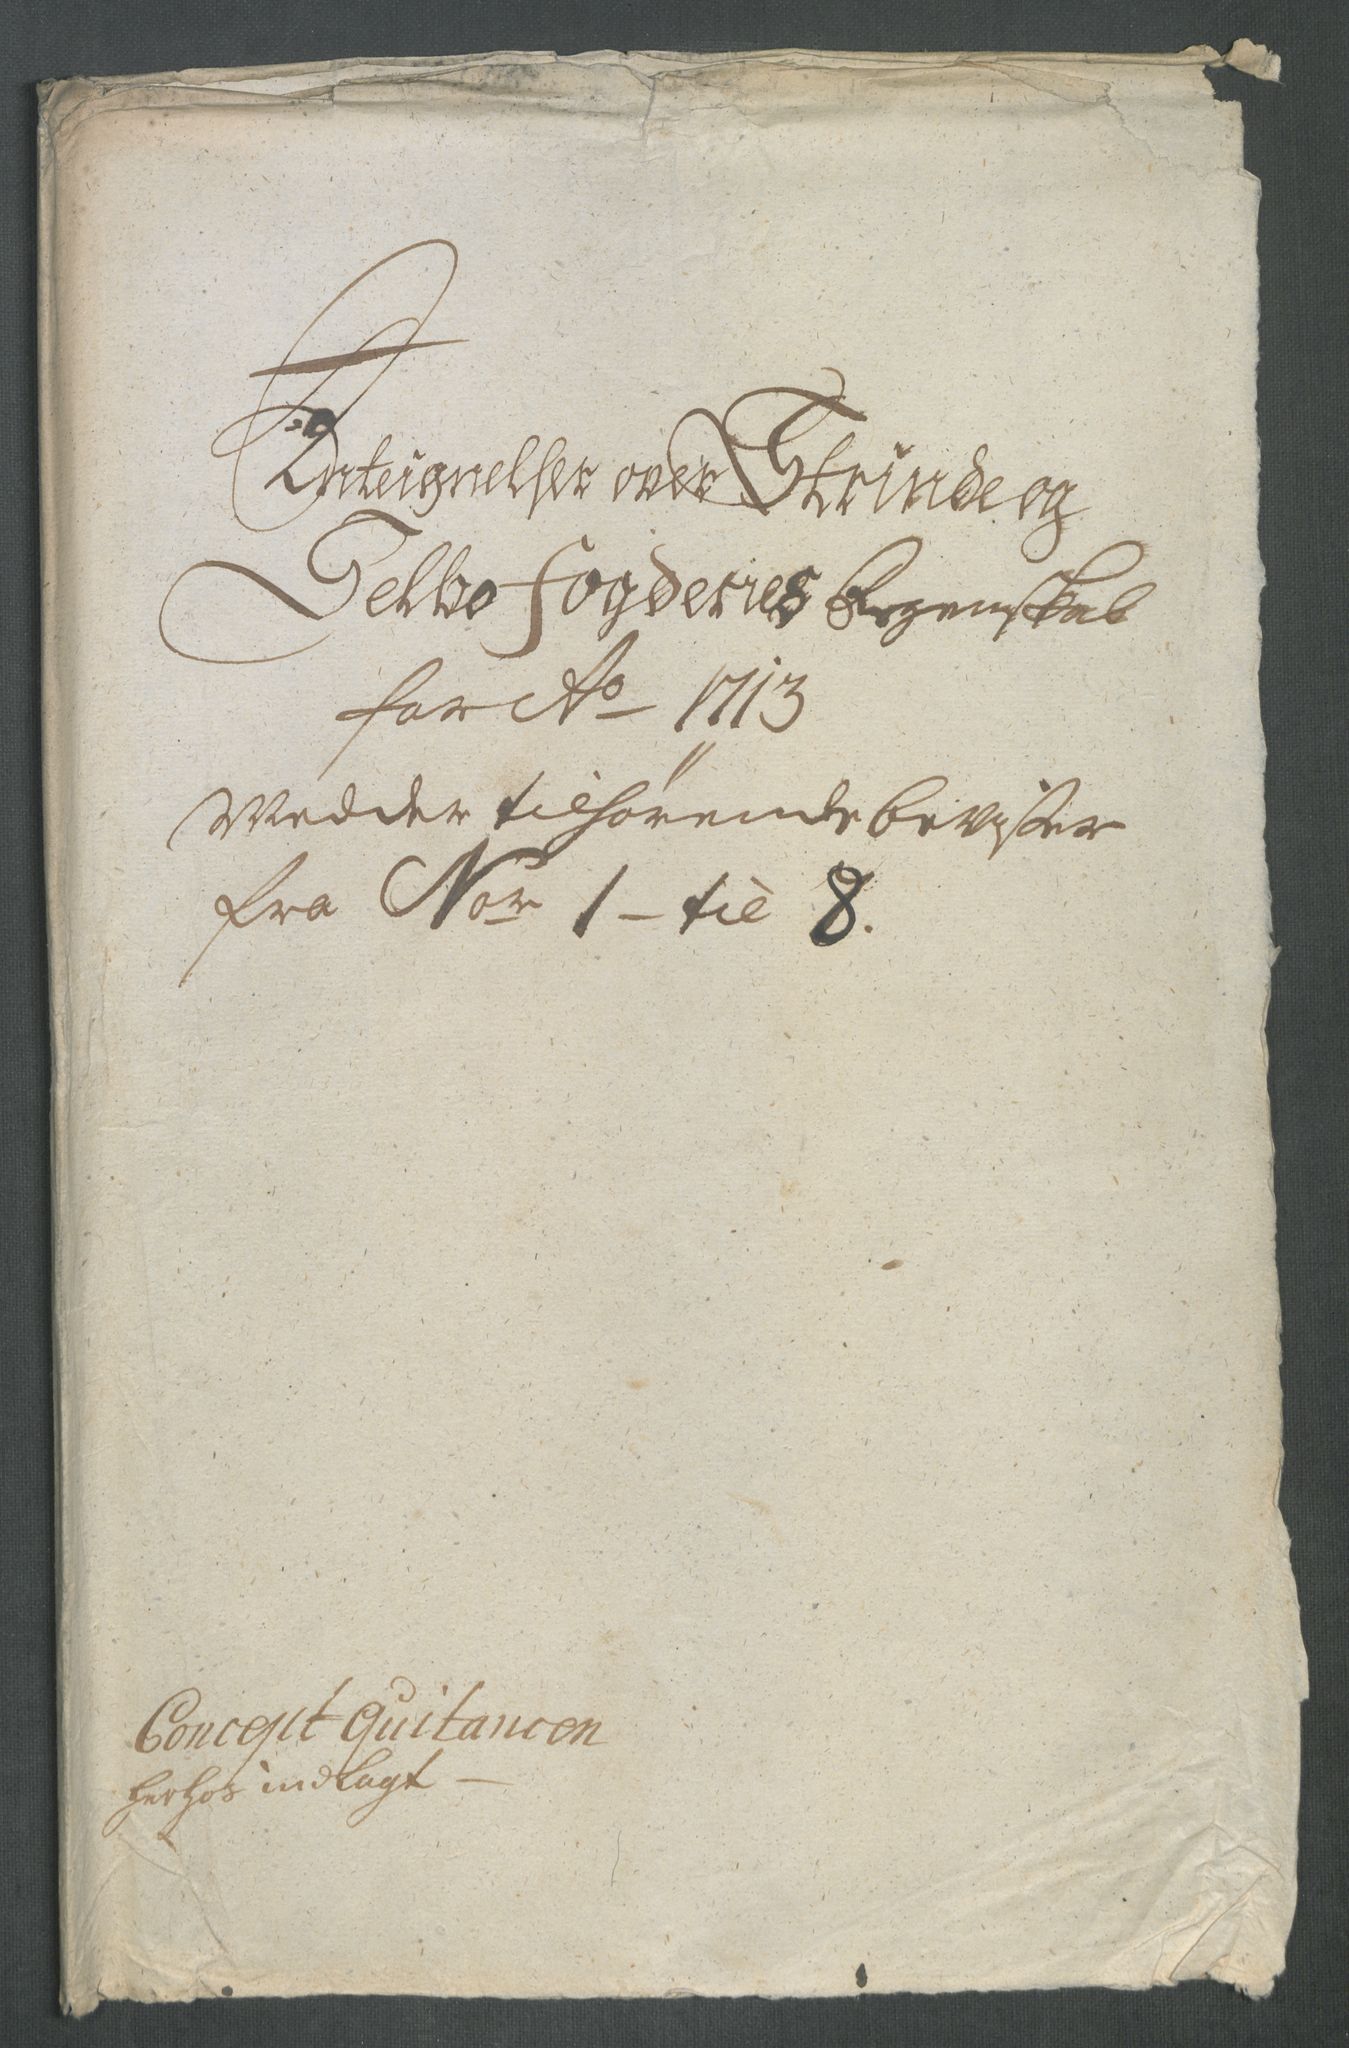 Anteignelser over Strinde og
Selbo fogderies Regenskab
for Ao 1713
Med der tilhörende beviser
fra Nor 1 - til 8.
Concept Quitancen
herhos indlagt —